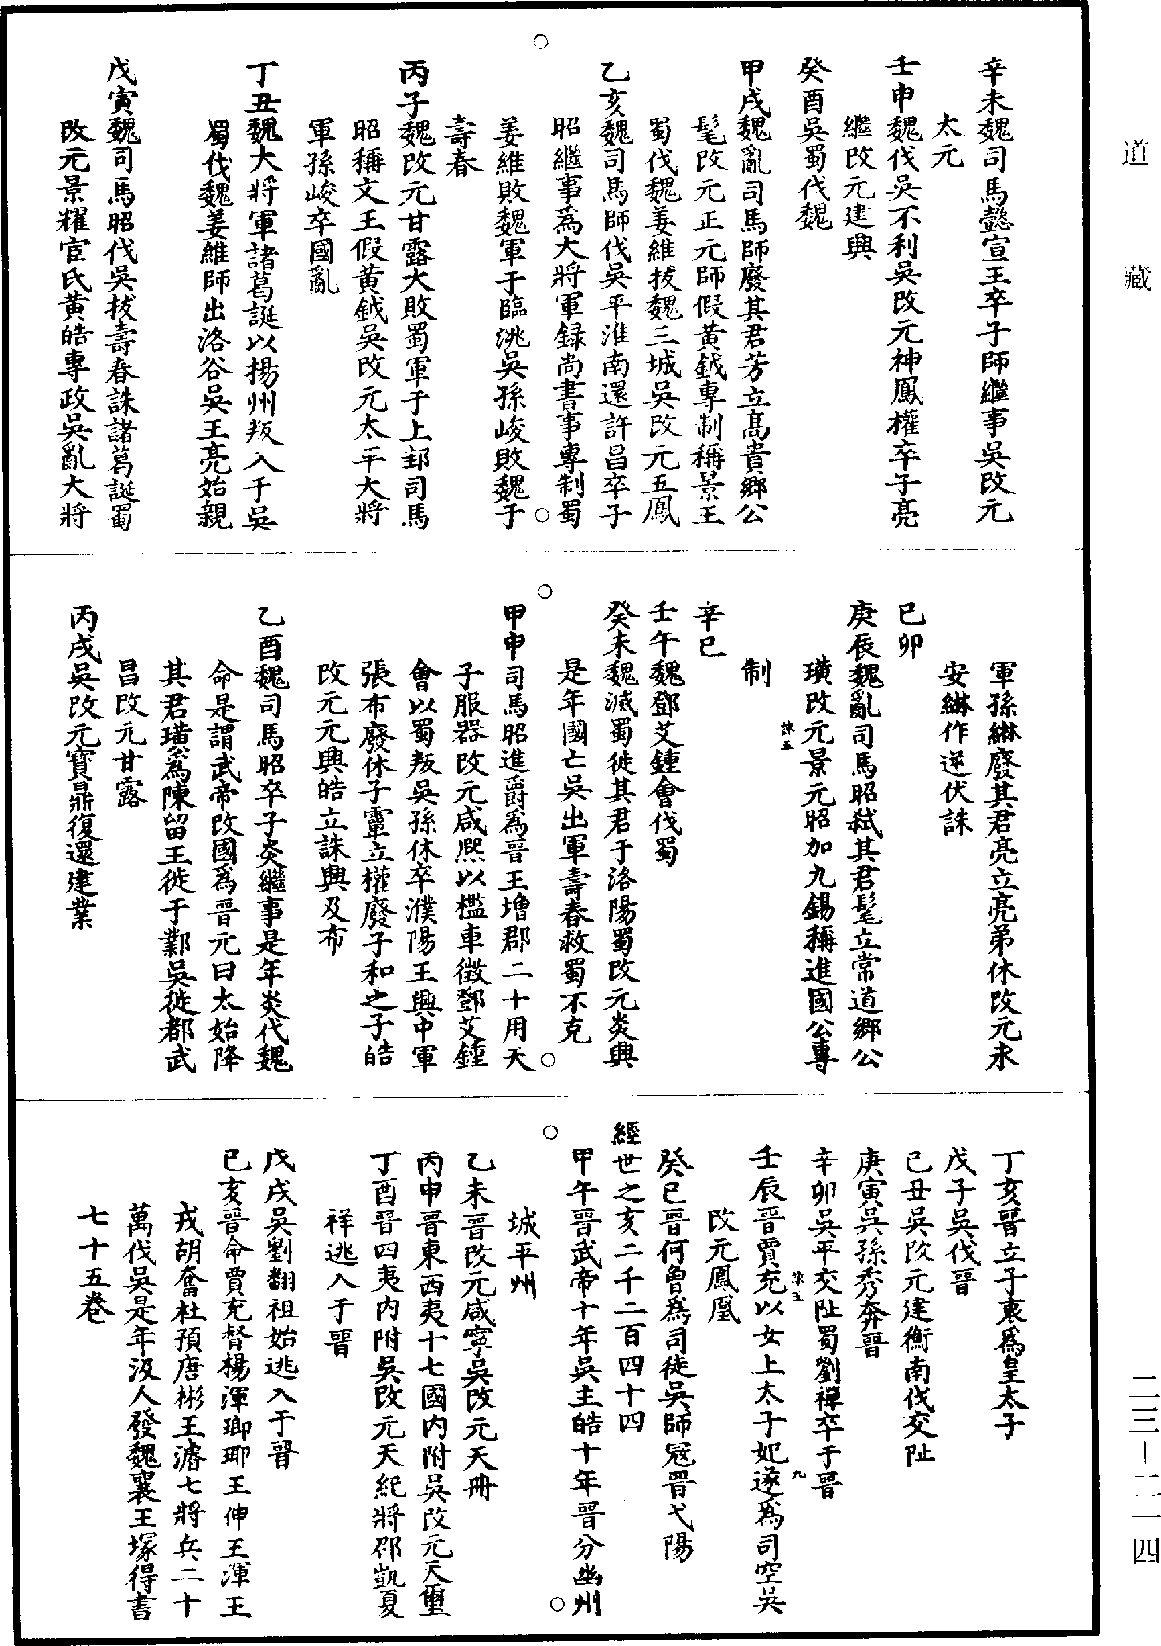 道藏
辛未魏司馬懿宣王卒子師繼事吳改元
太元
壬申魏伐吳不利吳改元神鳳權卒子亮
繼改元建興
癸酉吳蜀伐魏
甲戌魏亂司馬師廢其君芳立髙貴鄉公
髦改元正元師假黃鉞專制稱景王
蜀伐魏姜維拔魏三城吳改元五鳳
乙亥魏司馬師伐吳平淮南還許昌卒子
昭繼事為大將軍録尚書事專制蜀
姜維敗魏軍于臨洮吳孫峻敗魏于
壽春
丙子魏改元甘露大敗蜀軍于上邽司馬
昭稱文王假黃鉞吳改元太平大將
軍孫峻卒國亂
丁丑魏大將軍諸葛誕以揚州叛入于吳
蜀伐魏姜維師出洛谷吳王亮始親
戊寅魏司馬昭伐吳拔壽春誅諸葛誕蜀
改元景耀宦氏黃皓專政吳亂大將
軍孫綝廢其君亮立亮弟休改元永
安綝作逆伏誅
已卯
庚辰魏亂司馬昭弒其君髦立常道鄉公
璜改元景元昭加九錫稱進國公專
制
辛巳
壬午魏鄧艾鍾會伐蜀
癸未魏滅蜀徙其君于洛陽蜀改元炎興
是年國亡吳出軍壽春救蜀不克
甲申司馬昭進爵為晉王增郡二十用天
子服器改元咸熙以檻車徵鄧艾鍾
會以蜀叛吳孫休卒濮陽王興中軍
張布廢休子𩅦立權廢子和之子皓
改元元興皓立誅興及布
乙酉魏司馬昭卒子炎繼事是年炎代魏
命是謂武帝改國爲晉元曰太始降
其君璜爲陳留王徙于鄴吳徙都武
昌改元甘露
丙戌吳改元寶鼎復還建業
丁亥晉立子衷爲皇太子
戊子吳伐晉
已丑吳改元建衡南伐交阯
庚寅吳孫秀奔晉
辛卯吳平交阯蜀劉禪卒于晉
壬辰晉賈充以女上太子妃遂爲司空吳
改元鳳凰
癸巳晉何曾爲司徒吳師冦晉弋陽
經世之亥二千二百四十四
甲午晉武帝十年吳主皓十年晉分幽州
城平州
乙未晉改元咸寧吳改元天冊
丙申晉東西夷十七國内附吳改元天璽
丁酉晉四夷内附吳改元天紀將邵凱夏
祥逃入于晉
戊戌吳劉翻祖始逃入于晉
已亥晉命賈充督楊渾瑯琊王伷王渾王
戎胡奮杜預唐彬王濬七將兵二十
萬伐吳是年汲人發魏襄王塚得書
七十五卷
二三—二一四